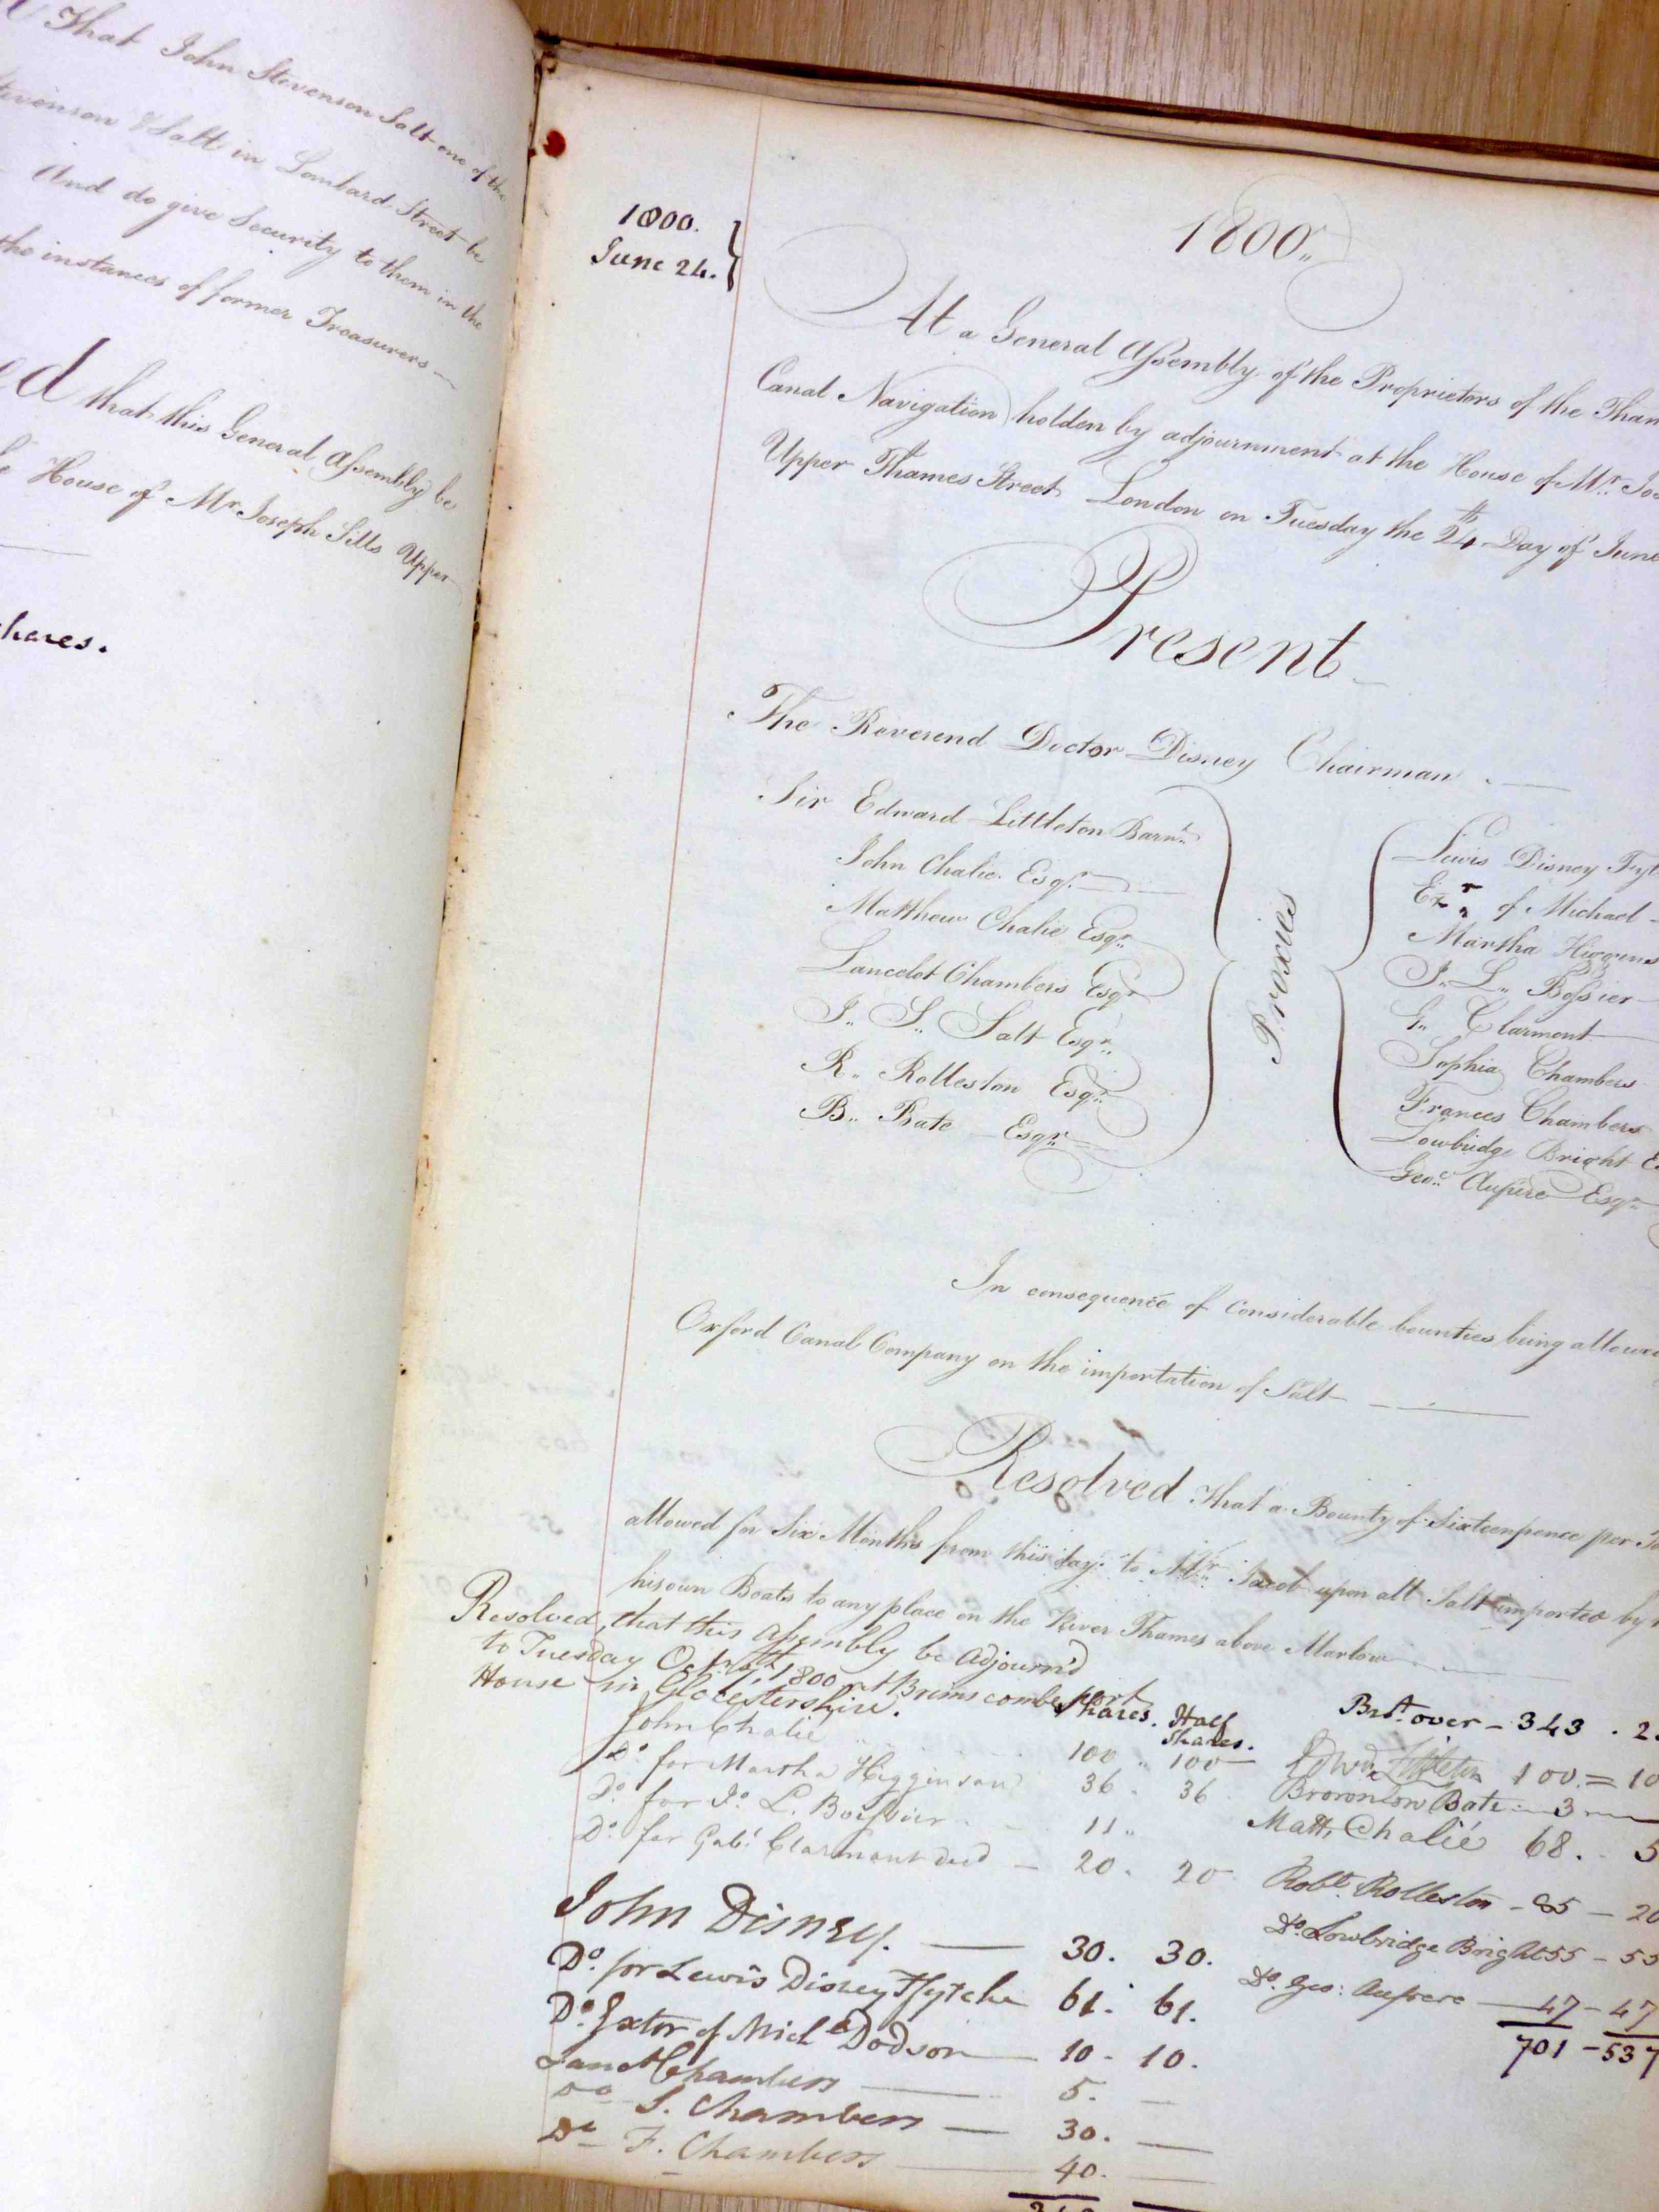 That John Stevenson Salt one of the
Stevenson & Salt in Lombard Street be
And do give Security to them in the
the instances of former Treasurers
ed that this General Assembly be
House of Mr Joseph Sills Upper
hares.
1800.
June 24.
1800.
At a General Assembly of the Proprietors of the Tham
Canal Navigation holden by adjournment at the House of Mr. Jos
Upper Thames Street London on Tuesday the 24th Day of June
Present
The Reverend Doctor Disney Chairman
Sir Edward Littleton Barnt.
John Chalie Esqr.
Matthew Chalie Esqr.
Lancelot Chambers Esqr.
J. S. Salt Esqr.
R. Rolleston Esqr.
B. Bate Esqr.
Proxies
Lewis Disney Fyt
Exr. of Michael
Martha Higgins
J. L. Bossier
G. Clarmont
Sophia Chambers
Frances Chambers
Lowbridge Bright E
Geo. Aupere Esqr.
In consequence of Considerable bounties being allowed
Oxford Canal Company on the importation of Salt
Resolved that a Bounty of Sixteenpence per To
allowed for Six Months from this day to Mr. Jacob upon all Salt imported by
his own Boats to any place on the River Thames above Marlow
Resolved, that this Assembly be Adjourn'd
to Tuesday Octr. 7th 1800 at Brimscombe port
House in Glocestershire.
Shares. Half Shares.
John Chalie 100 100
Do. for Martha Higginson 36 36
Do. for Jo. L. Boissier 11
Do. for Gabl. Clarmont Decd 20. 20
John Disney. 30. 30.
Do. for Lewis Disney Ffytche 61. 61.
Do. Extor of Michl Dodson 10 - 10.
Lanct Chambers 5.
Do S. Chambers 30.
Do F. Chambers 40.
343
Brot. over - 343 . 2
Edwd. Littleton 100 = 10
Brownlow Bate 3
Matt. Chalié 68. 5
Robt. Rolleston - 85 - 20
Do. Lowbridge Bright 55 - 55
Do. Geo: Aufrere 47 - 47
701 - 537